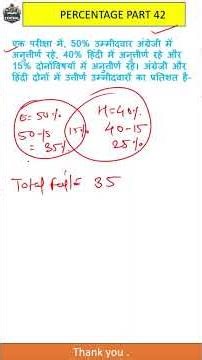 PERCENTAGE PART 42
एक परीक्षा में, 50% उम्मीदवार अंग्रेजी में
अनुत्तीर्ण रहे, 40% हिंदी में अनुत्तीर्ण रहे और
15% दोनोंविषयों में अनुत्तीर्ण रहे। अंग्रेजी और
हिंदी दोनों में उत्तीर्ण उम्मीदवारों का प्रतिशत है-
E=50% H=40%
50-15 15% 40-15
= 35% 25%
Total fail = 35
Thank you .